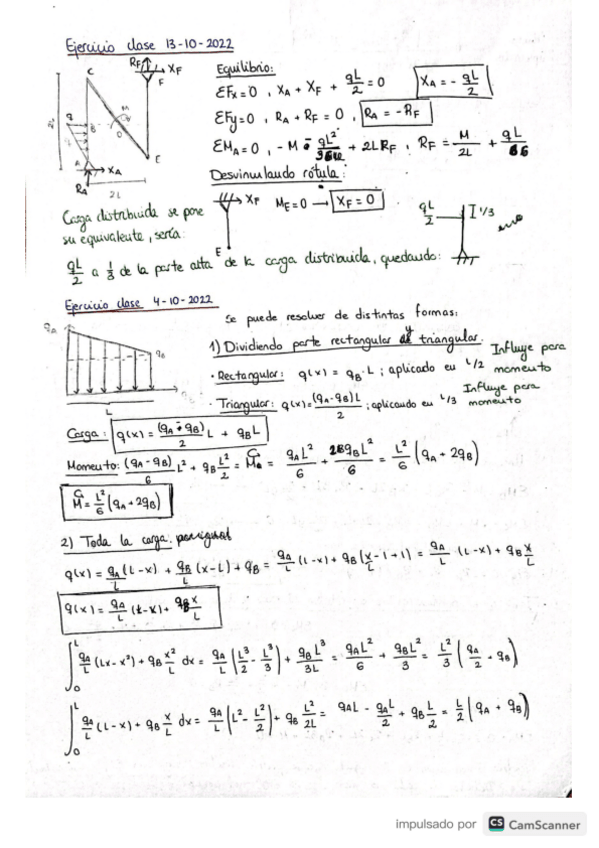 Ejercicio clase 13-10-2022
RF XF
C F
Equilibrio:
ΣFx=0 , XA + XF + qL/2 = 0 XA = - qL/2
ΣFy=0 , RA + RF = 0 , RA = -RF
ΣMA=0 , -M qL²/ + 2LRF , RF = M/2L + qL/
q B M D
A XA E
RA 2L
Desvinculando rótula:
XF ME=0 → XF = 0
E
qL/2 1/3
Carga distribuida se pone
su equivalente, sería:
qL/2 a 1/3 de la parte alta de la carga distribuida, quedando:
Ejercicio clase 4-10-2022
Se puede resolver de distintas formas:
qA qB
L
1) Dividiendo parte rectangular y triangular.
· Rectangular: q(x) = qB·L ; aplicado en L/2 Influye para momento
· Triangular: q(x)=(qA-qB)L/2 ; aplicando en L/3 Influye para momento
Carga: q(x) = (qA-qB)/2 L + qBL
Momento: (qA-qB)/6 L² + qB L²/2 = M = qAL²/6 + 2qBL²/6 = L²/6 (qA + 2qB)
M = L²/6 (qA+2qB)
2) Toda la carga por igual
q(x) = qA/L (L-x) + qB/L (x-L) + qB = qA/L (L-x) + qB (x/L -1+1) = qA/L (L-x) + qB x/L
q(x) = qA/L (L-x) + qB x/L
∫₀ᴸ qA/L (Lx-x²) + qB x²/L dx = qA/L (L³/2 - L³/3) + qB L³/3L = qAL²/6 + qBL²/3 = L²/3 (qA/2 + qB)
∫₀ᴸ qA/L (L-x) + qB x/L dx = qA/L (L² - L²/2) + qB L²/2L = qAL - qAL/2 + qB L/2 = L/2 (qA + qB)
impulsado por CS CamScanner